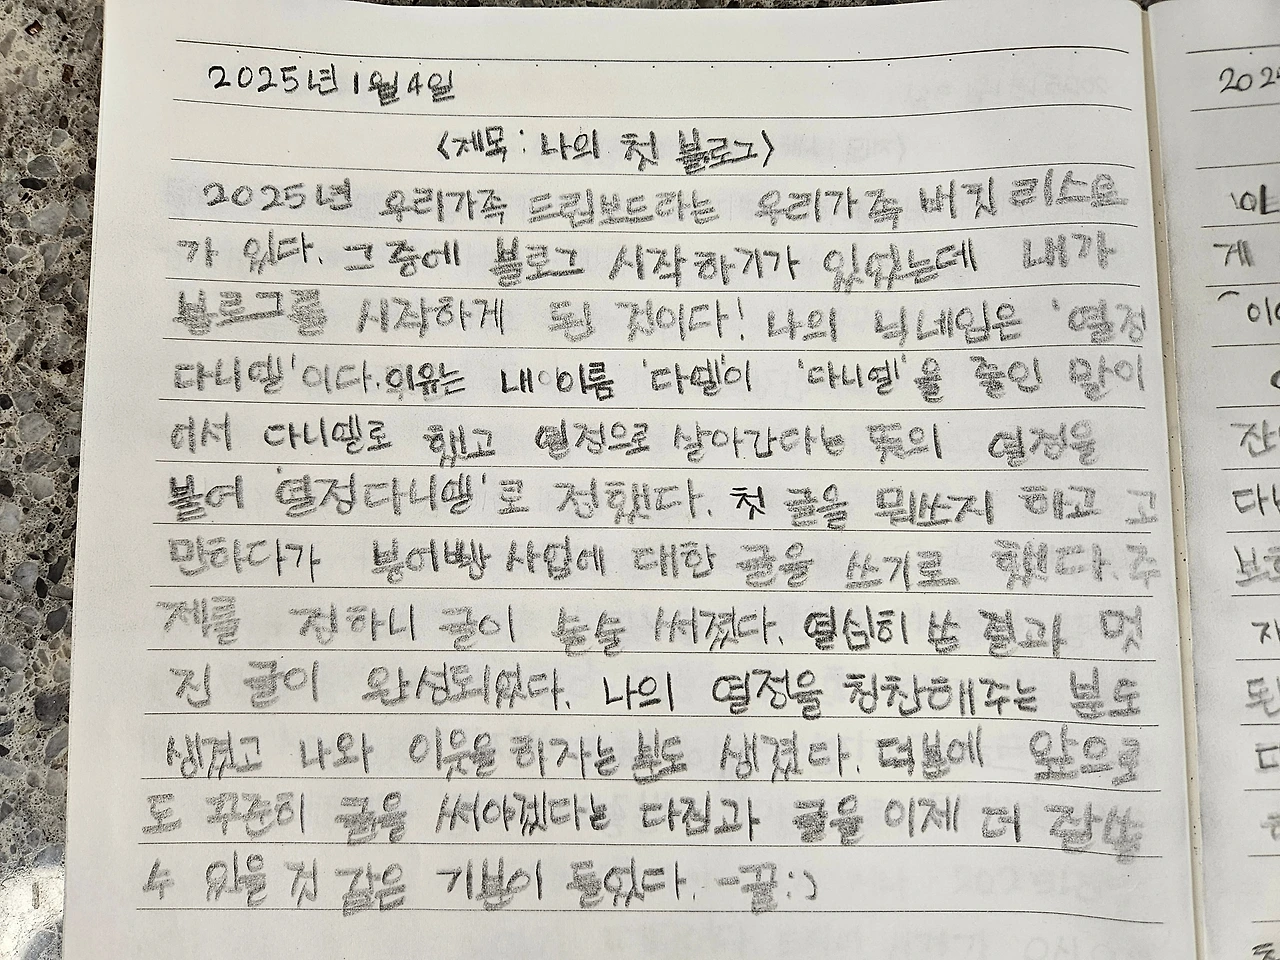 2025년 1월 4일
<제목: 나의 첫 블로그>
2025년 우리가족 드림보드라는 우리가족 버킷 리스트
가 있다. 그 중에 블로그 시작하기가 있었는데 내가
블로그를 시작하게 된 것이다! 나의 닉네임은 '열정
다니엘'이다. 이유는 내 이름 '다엘'이 '다니엘'을 줄인 말이
어서 다니엘로 했고 열정으로 살아간다는 뜻의 열정을
붙여 '열정다니엘'로 정했다. 첫 글을 뭐쓰지 하고 고
민하다가 붕어빵 사업에 대한 글을 쓰기로 했다. 주
제를 정하니 글이 술술 써졌다. 열심히 쓴 결과 멋
진 글이 완성되었다. 나의 열정을 칭찬해주는 분도
생겼고 나와 이웃을 하자는 분도 생겼다. 덕분에 앞으로
도 꾸준히 글을 써야겠다는 다짐과 글을 이제 더 잘 쓸
수 있을 것 같은 기분이 들었다. -끝:)
2025
게
다